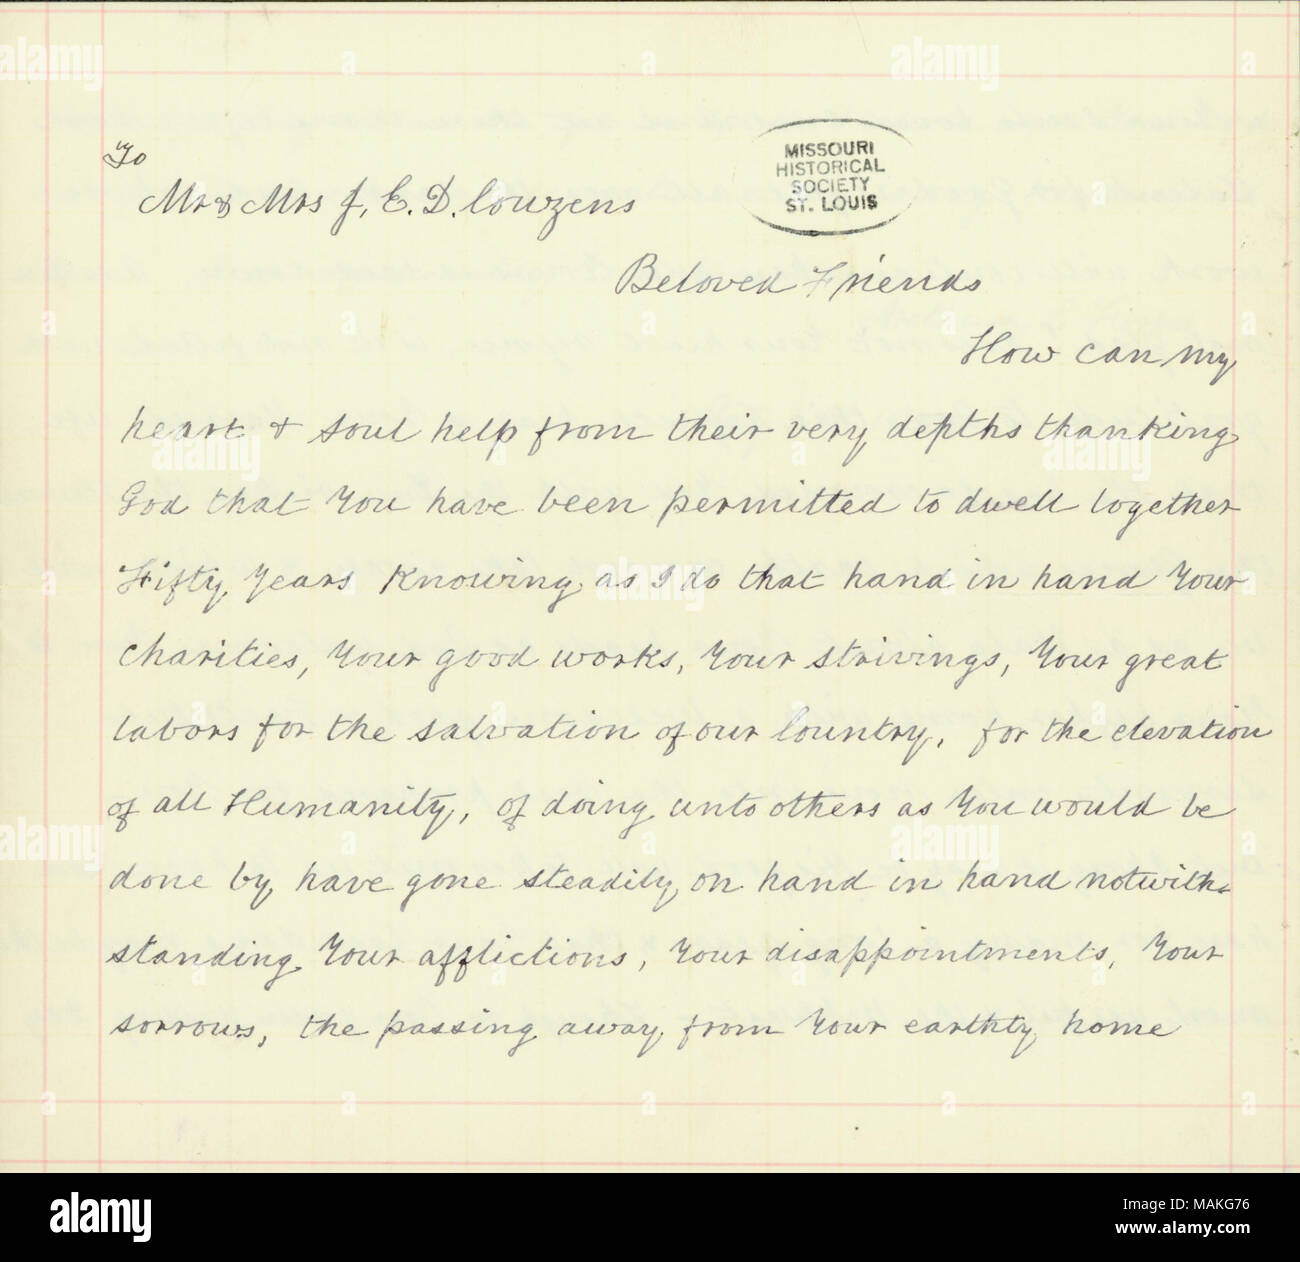 To
Mr & Mrs J. E. D. Couzens
MISSOURI
HISTORICAL
SOCIETY
ST. LOUIS
Beloved Friends
How can my
heart & soul help from their very depths thanking
God that You have been permitted to dwell together
Fifty Years Knowing as I do that hand in hand Your
charities, Your good works, Your strivings, Your great
labors for the salvation of our Country, for the elevation
of all Humanity, of doing unto others as You would be
done by, have gone steadily on hand in hand notwith-
standing Your afflictions, Your disappointments, Your
sorrows, the passing away from Your earthly home
alamy
Image ID: MAKG76
www.alamy.com